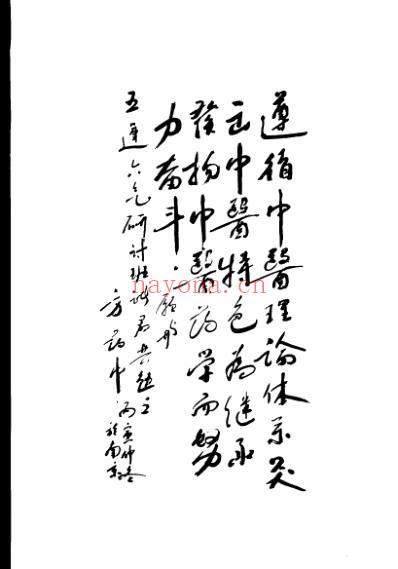 遵循中醫理論体系突
出中醫特色為继承
發扬中醫药学而努
力奋斗。愿与
五運六气研讨班诸君共勉之
方药中 丙寅仲冬
於南京
nayona.cn